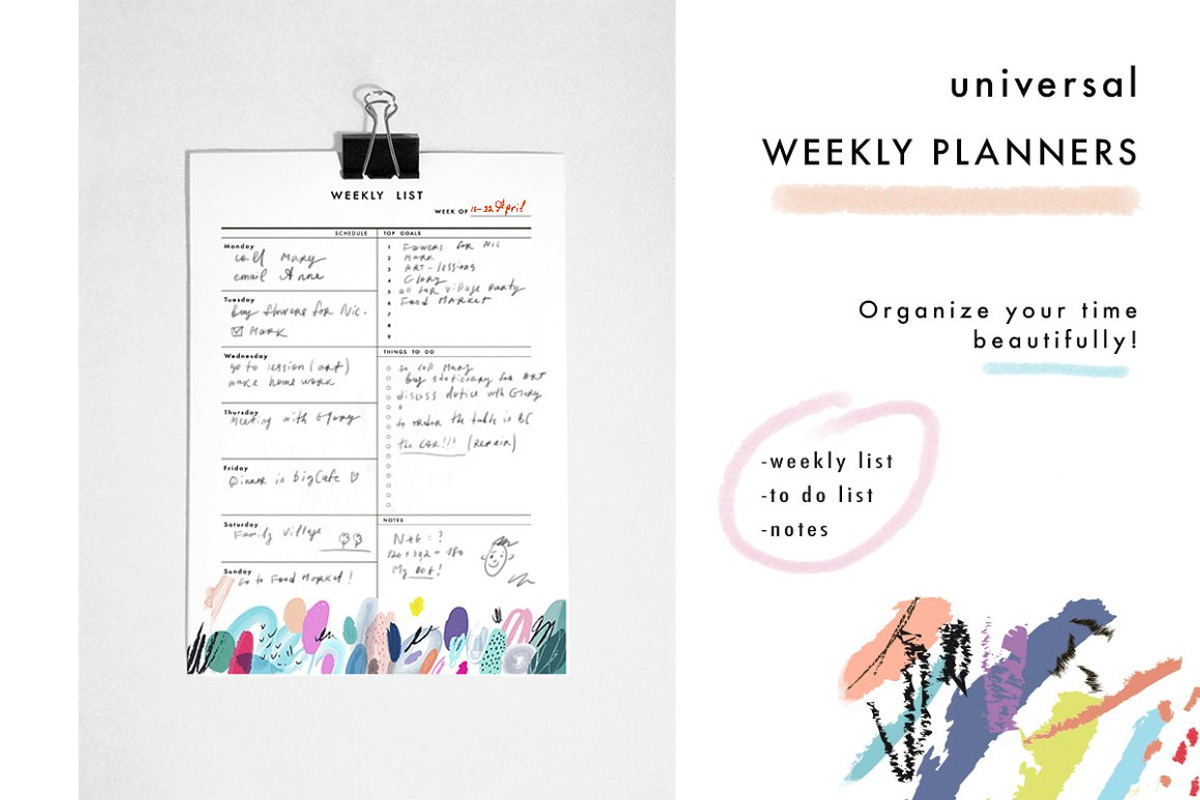 WEEKLY LIST
WEEK OF 16-22 April
SCHEDULE
Monday
call Mary
email Anne
Tuesday
Buy flowers for Nic.
Mark
Wednesday
go to lession (art)
make home work
Thursday
Meeting with Glory
Friday
Dinner in BigCafe
Saturday
Family Village
Sunday
Go to Food Market!
TOP GOALS
1 Fowers for Nic
2 Mark
3 ART-lessions
4 Glory
5 all for village party
6 Food Market
7
8
9
THINGS TO DO
to call Mary
Buy stationary for ART
discuss with Glory
to the table in BC
the CAR!!! (Repair)
NOTES
N+G=?
My DOG!
universal
WEEKLY PLANNERS
Organize your time
beautifully!
-weekly list
-to do list
-notes